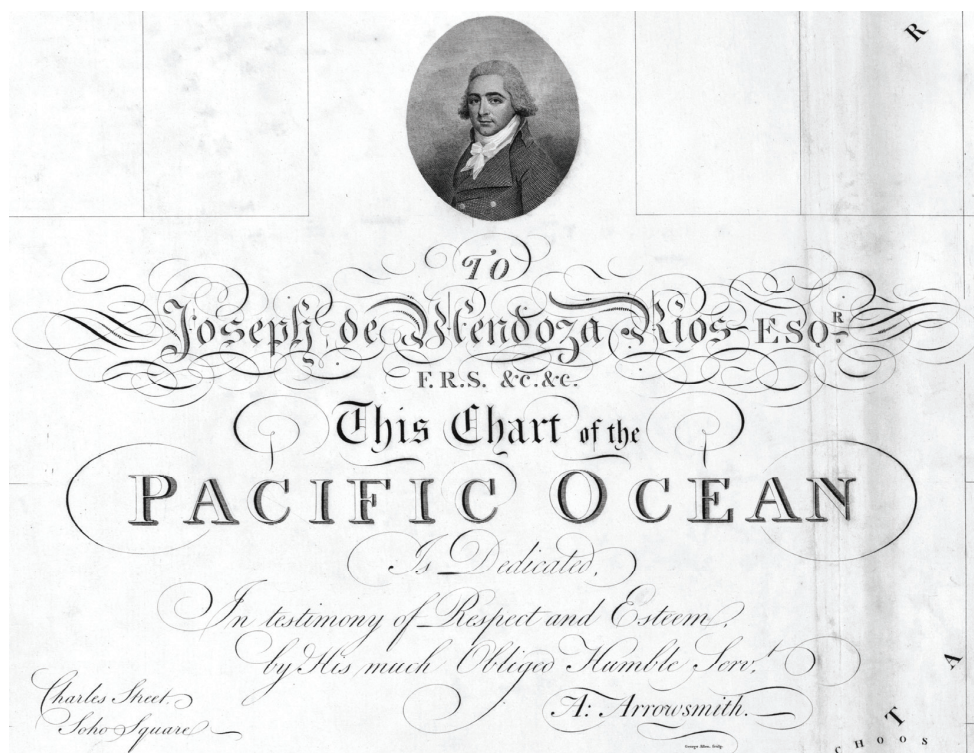 TO
Joseph de Mendoza Rios ESQR.
F.R.S. &c.&c.
This Chart of the
PACIFIC OCEAN
Is Dedicated,
In testimony of Respect and Esteem,
by His much Obliged Humble Servt.
A: Arrowsmith.
Charles Street
Soho Square
R
A
T
CHOOS